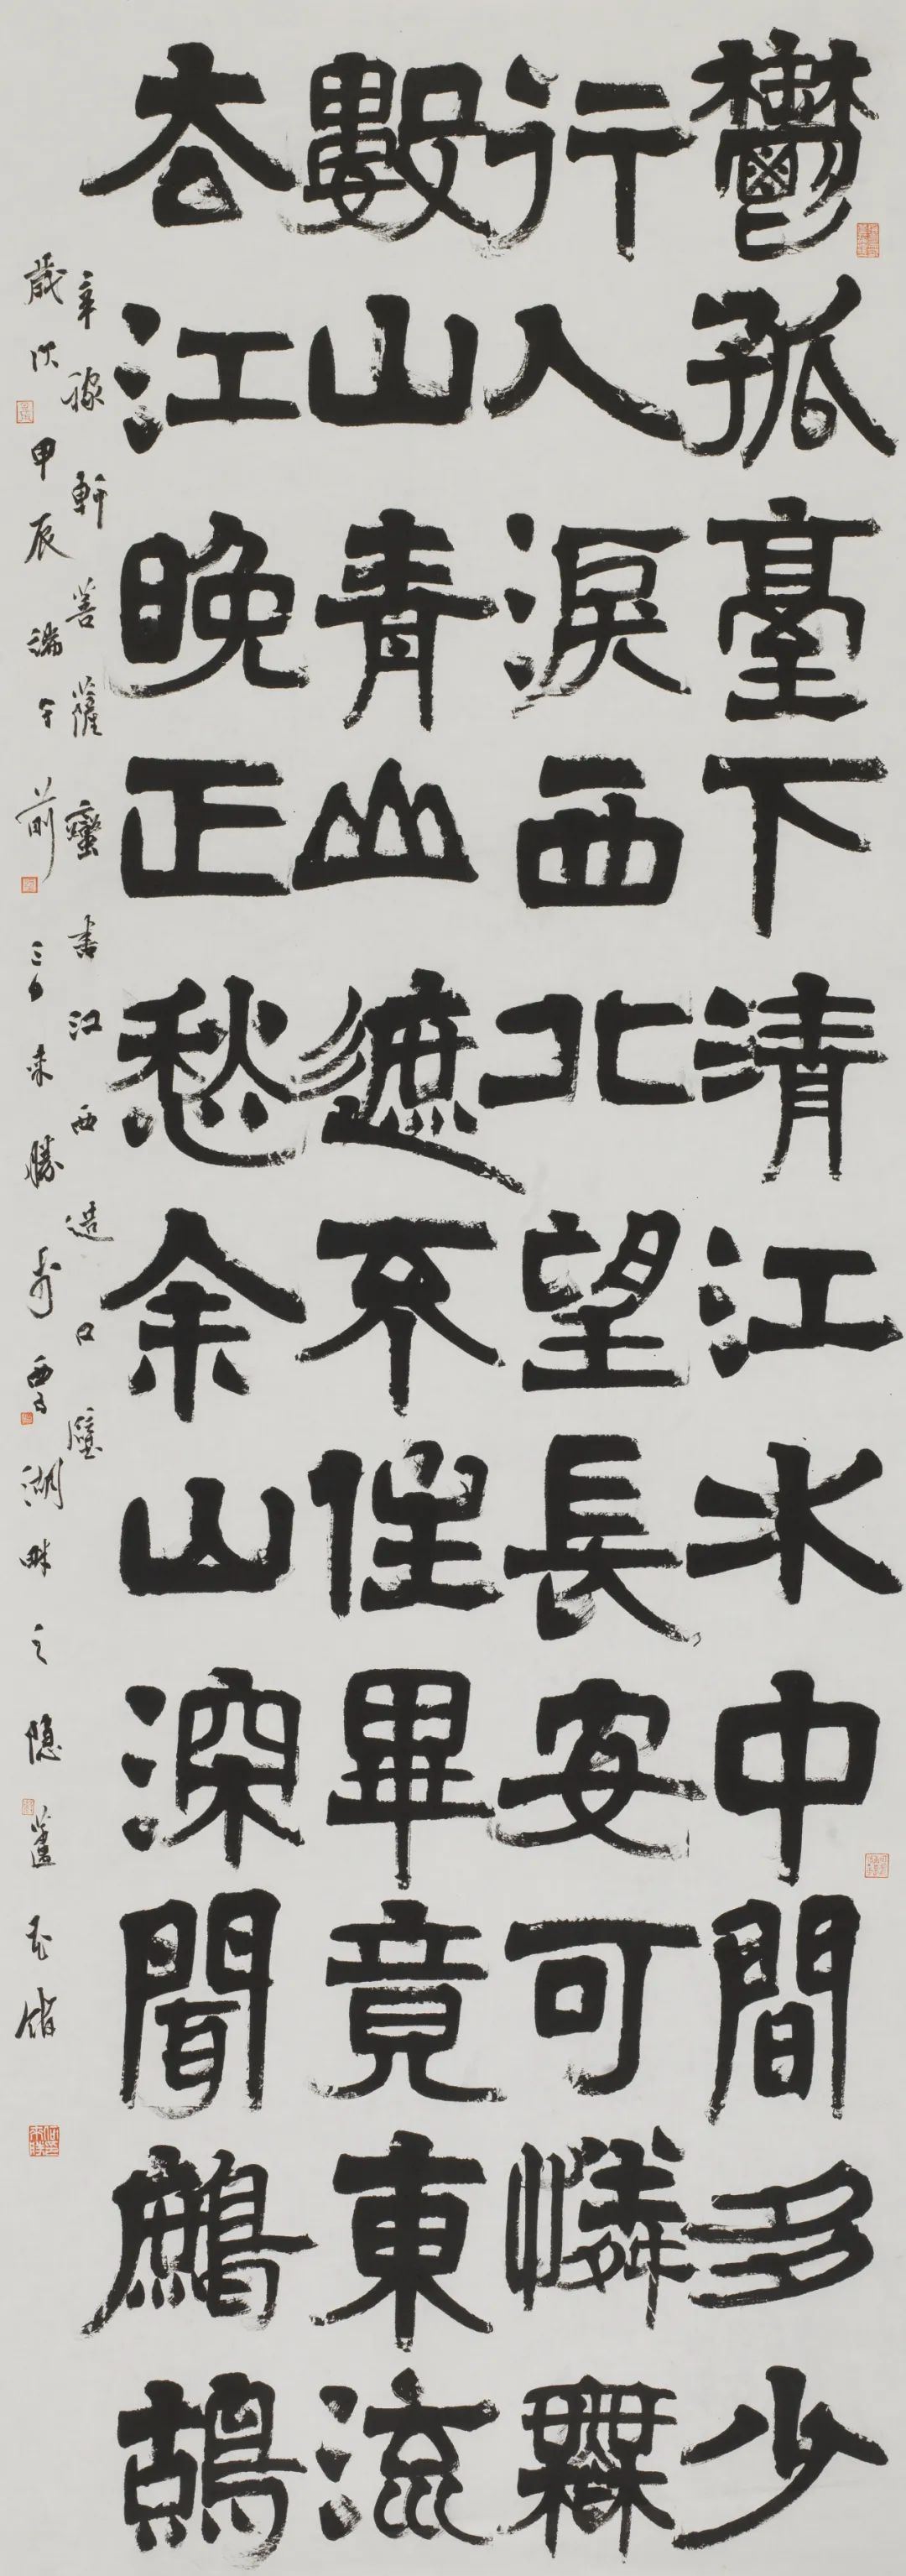 鬱孤臺下清江水中間多少
行人淚西北望長安可憐無
數山青山遮不住畢竟東流
去江晚正愁余山深聞鷓鴣
辛稼軒菩薩蠻書江西造口壁
歲次甲辰端午前三日來勝西子湖畔之隱